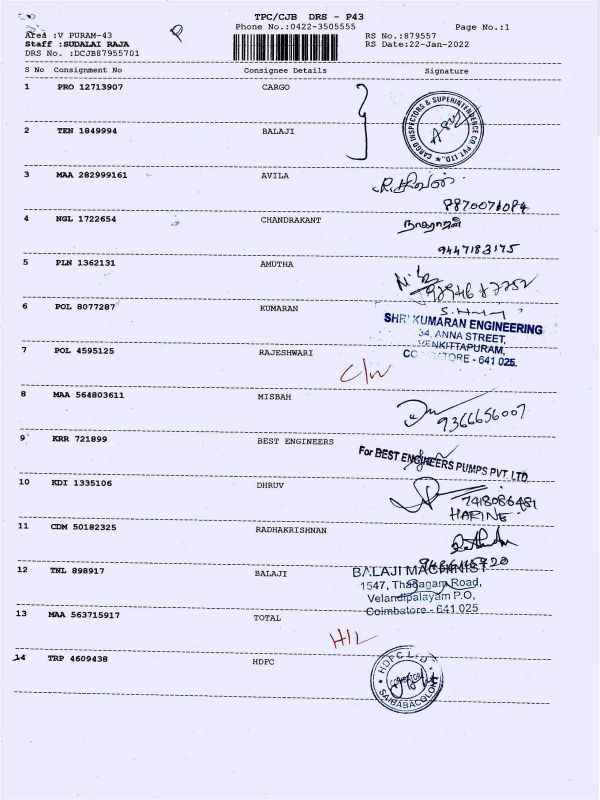 TPC/CJB DRS - P43
Phone No.:0422-3505555
Page No.:1
Area :V PURAM-43
Staff :SUDALAI RAJA
DRS No. :DCJB87955701
RS No.:879557
RS Date:22-Jan-2022
S No Consignment No Consignee Details Signature
1 PRO 12713907 CARGO
CARGO INSPECTORS & SUPERINTENDENCE CO.PVT.LTD.
2 TEN 1849994 BALAJI
3 MAA 282999161 AVILA
8870071084
4 NGL 1722654 CHANDRAKANT
நாகராஜன்
9447183175
5 PLN 1362131 AMUTHA
6 POL 8077287 KUMARAN
SHRI KUMARAN ENGINEERING
34, ANNA STREET,
VENKITTAPURAM,
COIMBATORE - 641 025.
7 POL 4595125 RAJESHWARI
C/N
8 MAA 564803611 MISBAH
9366656007
9 KRR 721899 BEST ENGINEERS
For BEST ENGINEERS PUMPS PVT LTD
10 KDI 1335106 DHRUV
7418086481
HARINE
11 CDM 50182325 RADHAKRISHNAN
12 TNL 898917 BALAJI
BALAJI MACHINIST
1547, Thadagam Road,
Velandipalayam P.O,
Coimbatore - 641 025
13 MAA 563715917 TOTAL
H/L
14 TRP 4609438 HDFC
HDFC LTD
SAIBABACOLONY